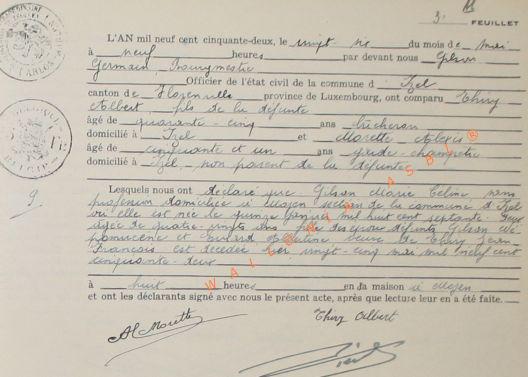 3e FEUILLET
L'AN mil neuf cent cinquante-deux, le vingt six du mois de mai
à neuf heures par devant nous Gilson
Germain, Bourgmestre
Officier de l'état civil de la commune d' Izel
canton de Florenville province de Luxembourg, ont comparu Thiry
Albert fils de la défunte
âgé de quarante-cinq ans bûcheron
domicilié à Izel et Morette Alexis
âgé de cinquante et un ans garde champêtre
domicilié à Izel, non parent de la défunte
9.
Lesquels nous ont déclaré que Gilson Marie Céline sans
profession domiciliée à Moyen section de la commune d'Izel
où elle est née le quinze janvier mil huit cent septante deux
âgée de quatre-vingts ans fille des époux défunts Gilson Né
pomucène et Pauline veuve de Thiry Jean
François est décédée hier vingt-cinq mai mil neuf cent
cinquante-deux
à huit heures en da maison à Moyen
et ont les déclarants signé avec nous le présent acte, après que lecture leur en a été faite.
Al Morette Thiry Albert
WALLONIA ASBL ®